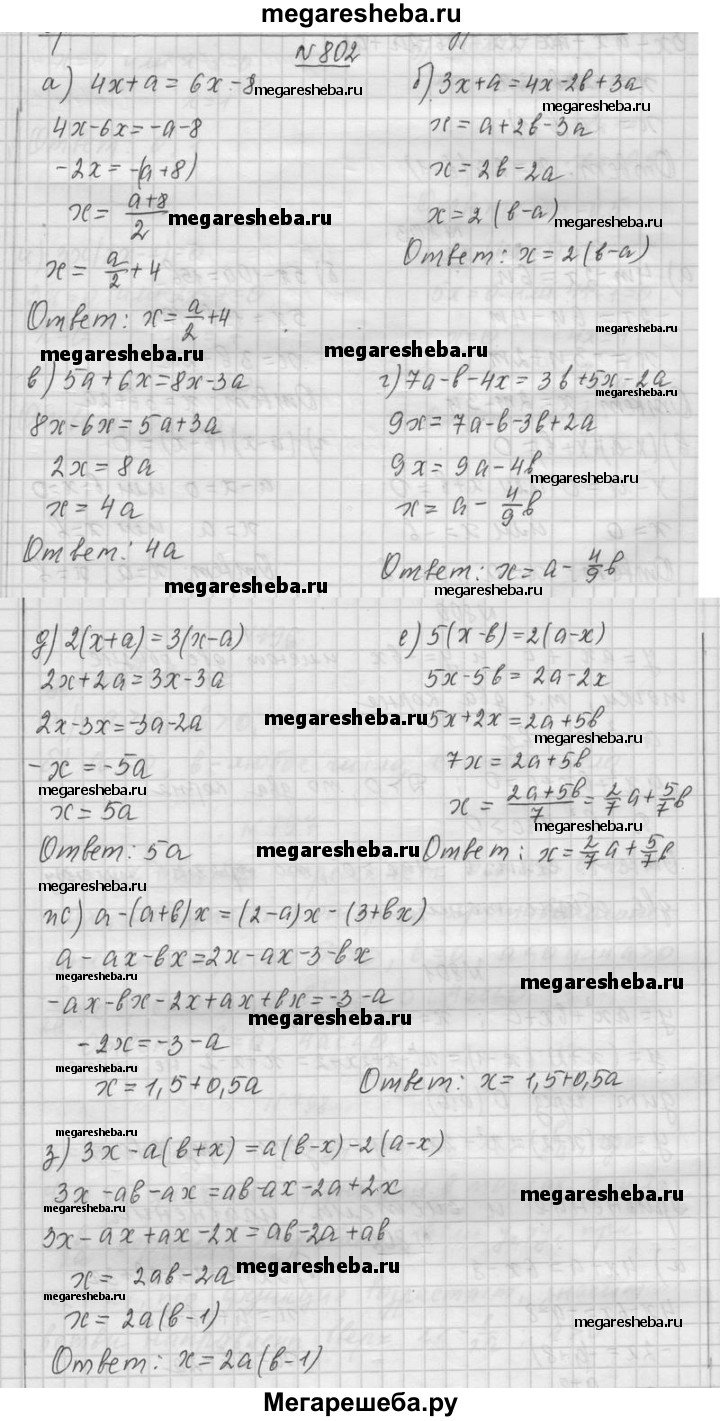 megaresheba.ru
N 802
а) 4x+a = 6x-8
4x-6x=-a-8
-2x = -(a+8)
x = \frac{a+8}{2}
x = \frac{a}{2}+4
Ответ: x = \frac{a}{2}+4
б) 3x+a = 4x-2b+3a
x = a+2b-3a
x = 2b-2a
x = 2(b-a)
Ответ: x = 2(b-a)
megaresheba.ru
megaresheba.ru
megaresheba.ru
megaresheba.ru
megaresheba.ru
megaresheba.ru
megaresheba.ru
megaresheba.ru
в) 5a+6x=8x-3a
8x-6x=5a+3a
2x = 8a
x = 4a
Ответ: 4a
г) 7a-b-4x = 3b+5x-2a
9x = 7a-b-3b+2a
9x = 9a-4b
x = a - \frac{4}{9}b
Ответ: x = a - \frac{4}{9}b
megaresheba.ru
megaresheba.ru
megaresheba.ru
megaresheba.ru
д) 2(x+a) = 3(x-a)
2x+2a = 3x-3a
2x-3x=-3a-2a
-x = -5a
x = 5a
Ответ: 5a
е) 5(x-b)=2(a-x)
5x-5b = 2a-2x
5x+2x = 2a+5b
7x = 2a+5b
x = \frac{2a+5b}{7} = \frac{2}{7}a+\frac{5}{7}b
Ответ: x = \frac{2}{7}a+\frac{5}{7}b
megaresheba.ru
megaresheba.ru
megaresheba.ru
megaresheba.ru
megaresheba.ru
megaresheba.ru
megaresheba.ru
ж) a-(a+b)x = (2-a)x-(3+bx)
a-ax-bx=2x-ax-3-bx
-ax-bx-2x+ax+bx=-3-a
-2x=-3-a
x = 1,5+0,5a
Ответ: x = 1,5+0,5a
megaresheba.ru
megaresheba.ru
megaresheba.ru
megaresheba.ru
megaresheba.ru
з) 3x-a(b+x) = a(b-x)-2(a-x)
3x-ab-ax=ab-ax-2a+2x
3x-ax+ax-2x=ab-2a+ab
x = 2ab-2a
x = 2a(b-1)
Ответ: x = 2a(b-1)
megaresheba.ru
megaresheba.ru
megaresheba.ru
megaresheba.ru
Мегарешеба.ру